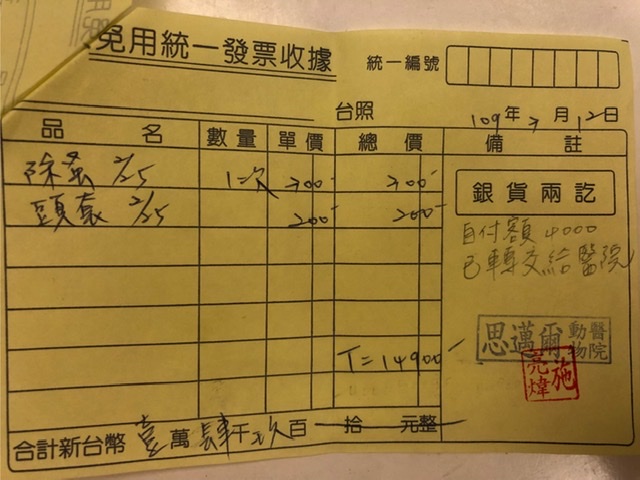 免用統一發票收據
統一編號
台照
109年3月12日
品名 數量 單價 總價 備註
除蚤 2/25 1次 300- 300-
頭套 2/25 200- 200-
銀貨兩訖
自付額 4000
已轉交給醫院
思邁爾動物醫院
施亮煒
T=14900-
合計新台幣 壹萬肆千玖百拾元整